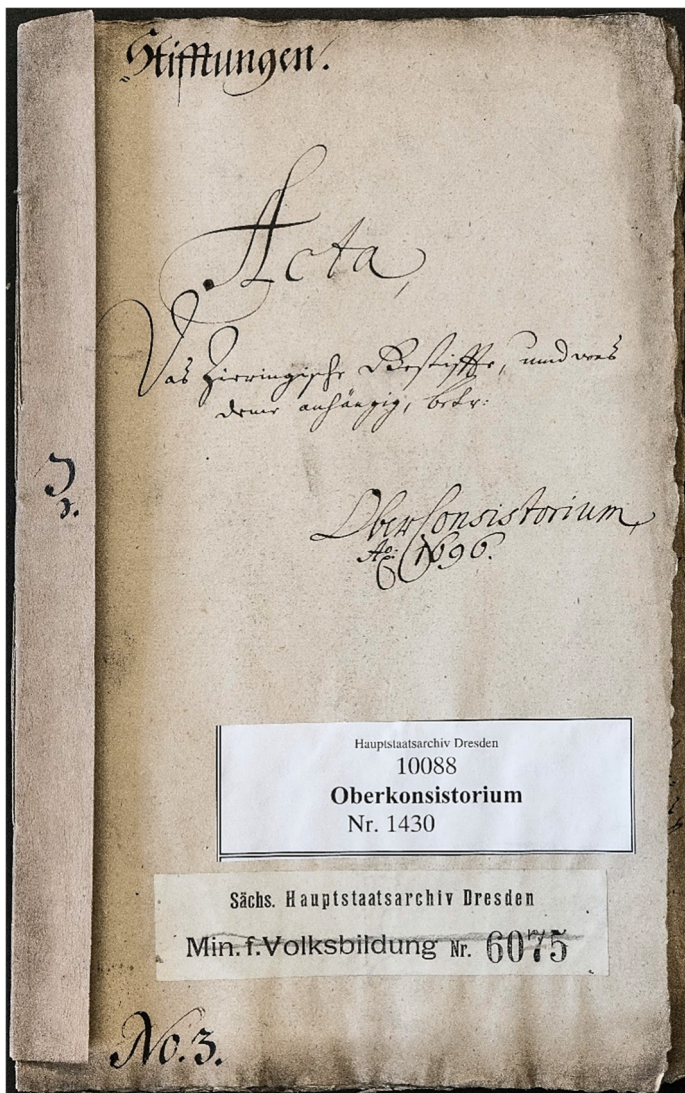 Stifftungen.
Acta,
Das Zieringische Gestiffte, und was
deme anhängig, betr:
OberConsistorium,
Ao: 1696.
Hauptstaatsarchiv Dresden
10088
Oberkonsistorium
Nr. 1430
Sächs. Hauptstaatsarchiv Dresden
Min. f. Volksbildung Nr. 6075
No. 3.